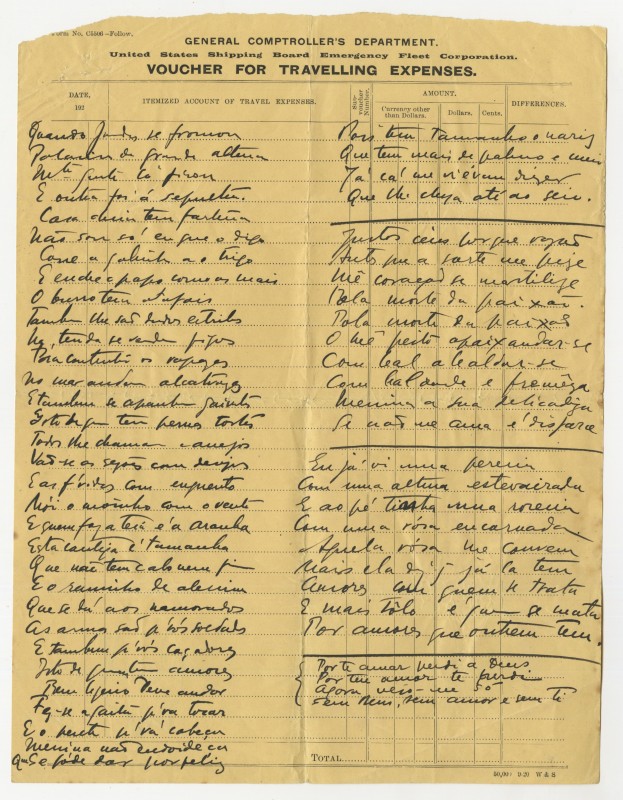 Form No. C5506—Follow.
GENERAL COMPTROLLER'S DEPARTMENT.
United States Shipping Board Emergency Fleet Corporation.
VOUCHER FOR TRAVELLING EXPENSES.
DATE,
192
ITEMIZED ACCOUNT OF TRAVEL EXPENSES.
Sub-voucher Number.
AMOUNT.
Currency other than Dollars.
Dollars.
Cents.
DIFFERENCES.
Quando Judas se
de grande altura
gente lá ficou
E outra foi á
Casa tem
Não sou só eu que o digo
Come a galinha ao trigo
E enche o papo como as mais
O burro tem
Tambem lhe são dados
tenda se vendem figos
Para os rapazes
No mar andam alcatruzes
E tambem se apanham
tem pernas tortas
Todos lhe chamam
Vão-se os com
E as com unguento
Mói o moinho com o vento
E quem faz a teia é a aranha
Esta cantiga é tamanha
Que não tem cabo nem fim
E o raminho de alecrim
Que se dá aos namorados
As armas são p'rós soldados
E tambem p'rós caçadores
Isto de amores
Bem ligeiro deve andar
Fez-se a gaita p'ra tocar
E o pente p'rá cabeça
Menina não endoideça
Que se póde dar por feliz
Pois tem tamanho o nariz
Que tem mais de palmo e meio
Já cá me viéram dizer
Que lhe chega até ao seio.
Justos céus por que razão
a sorte me
Mê coração se mortifica
Pela morte da paixão.
Pela morte da paixão
O mê peito apaixonar-se
Com leal a lealdar-se
Com lealdade e
Menina a sua delicadeza
Se não me ama é disfarce
Eu já vi uma pereira
Com uma altura
E ao pé tinha uma roseira
Com uma rósa encarnada.
Aquela rósa me convem
Mais ela diz já la tem
Amores com quem se trata
E mais tôlo é quem se mata
Por amores que outrem tem.
Por te amar perdi a Deus
Por teu amor te perdi
Agora vejo-me só
Sem Deus, sem amor e sem ti
TOTAL
50,000 9-20 W & S